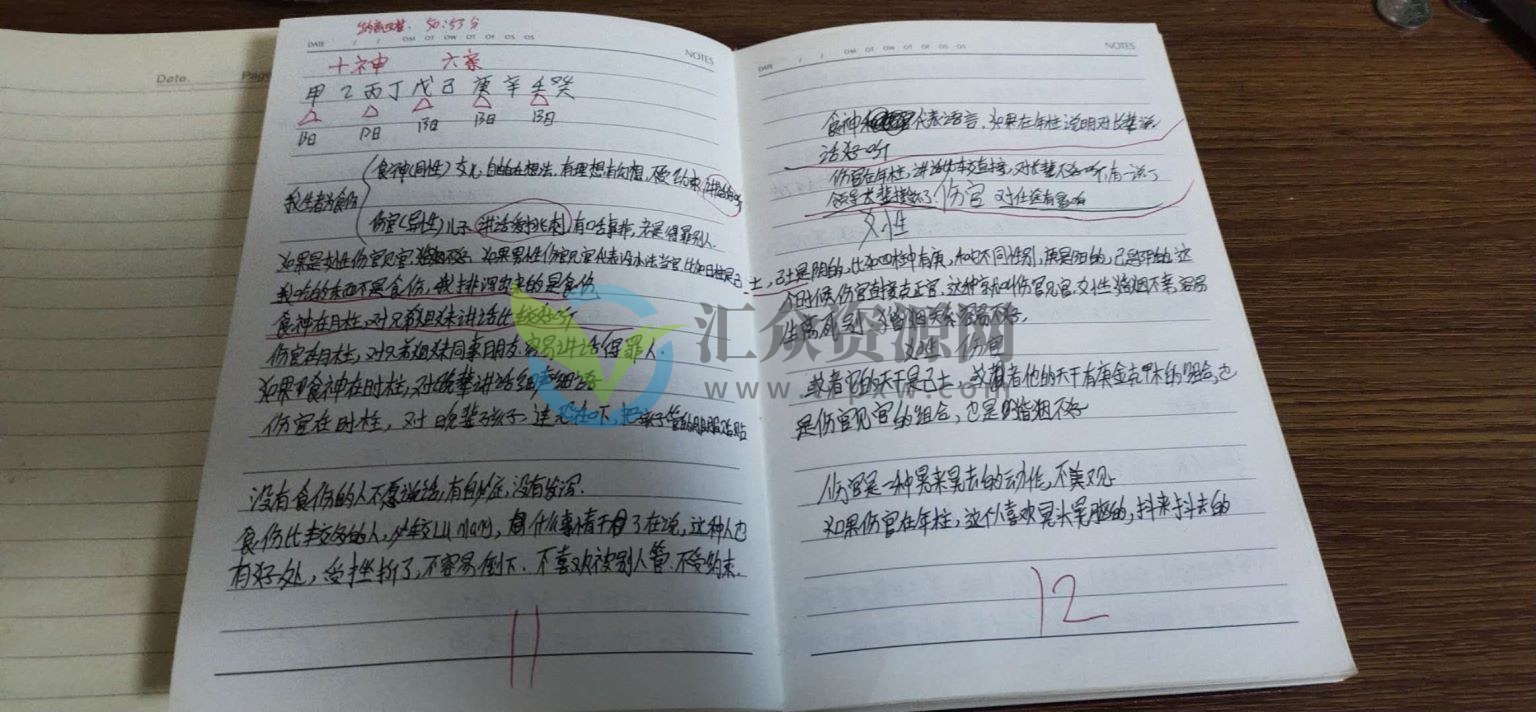 Date.
Page
50:53分
DATE / / ○M ○T ○W ○T ○F ○S ○S
NOTES
十神 六亲
甲乙丙丁戊己庚辛壬癸
阳 阳 阳 阳 阳
我生者为食伤
食神(同性)女儿 自由自在想法,有理想有幻想,不受约束
伤官(异性)儿子 讲话爱挑刺,有口舌事非,老是得罪别人.
如果是女性伤官见官婚姻不好 如果男性伤官见官代表没办法当官,比如日柱是己
我吃的东西不是食伤,我排泄出来的是食伤
食神在月柱,对兄弟姐妹讲话比较好听
伤官在月柱,对兄弟姐妹同事朋友容易讲话得罪人.
如果食神在时柱,对晚辈讲话细声细语
伤官在时柱,对晚辈孩子,连 把孩子管的服服贴贴
没有食伤的人不愿说话,有自妙症,没有发泄.
食伤比较多的人,比较Lu mang,想什么事情干了在说,这种人也
有好处,受挫折了,不容易倒下.不喜欢被别人管.不受约束.
11
DATE / / ○M ○T ○W ○T ○F ○S ○S
NOTES
食神代表语言.如果在年柱说明对长辈说
话好听
伤官在年柱,讲话比较直接,对长辈不好听,有一说一
领导长辈 伤官 对仕途有影响
女性
土,己土是阴的,比如四柱中有庚,和它不同性别,庚是阳的,己是阴的,这
个时候伤官直接克正官.这种就叫伤官见官.女性婚姻不幸,容易
生离死别,婚姻关系容易不好.
女性 伤官
或者它的天干是己土 或者他的天干有庚金克甲木的组合,也
是伤官见官的组合,也是婚姻不好
伤官是一种晃来晃去的动作,不美观
如果伤官在年柱,这个人喜欢晃头晃脑的,抖来抖去的
12
汇众资源网